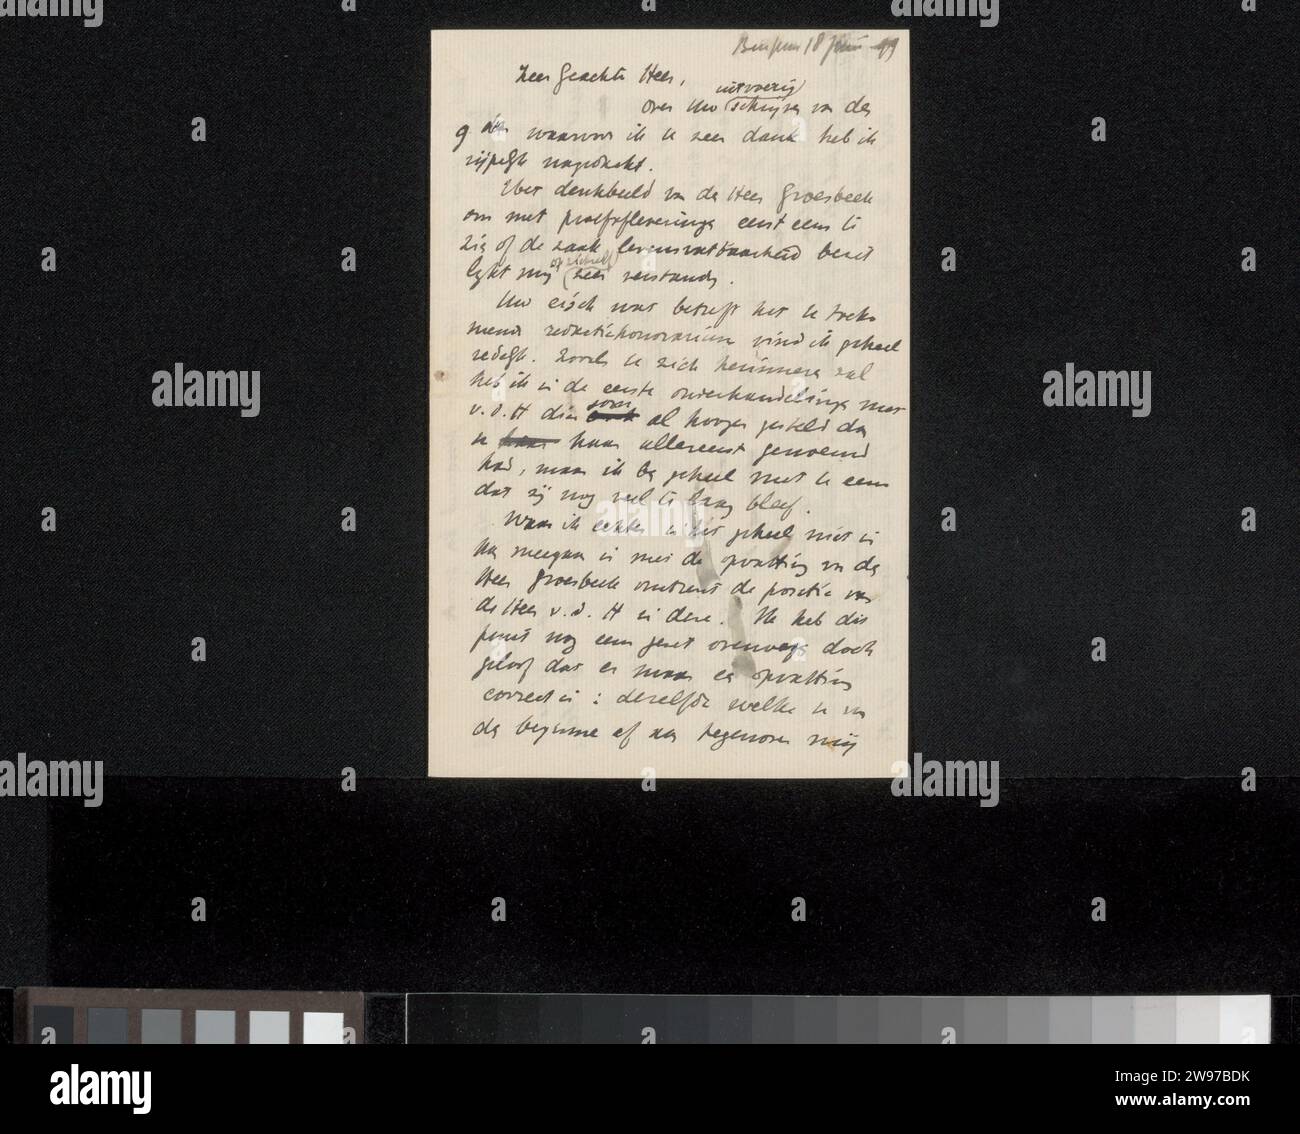 Bussum 18 Juni 99
Zeer Geachte Heer,
uitvoerig
over Uw schrijven van den
9 den waarvoor ik u zeer dank heb ik
rijpelijk nagedacht.
Het denkbeeld van den Heer Groesbeek
om met proefafleveringen eerst eens te
zien of de zaak levensvatbaarheid bezit
op zichzelf
lijkt mij zeer verstandig.
Uw eisch wat betreft het u toeko
mend redactiehonorarium vind ik geheel
redelijk. Zooals u zich herinneren zal
heb ik in de eerste onderhandelingen met
v. d. H die som al hooger gesteld dan
u haar allereerst genoemd
had, maar ik ben geheel met u eens
dat zij nog veel te laag bleef.
Waar ik echter in het geheel niet in
kan meegaan is met de opvatting van den
Heer Groesbeek omtrent de positie van
den Heer v. d. H in deze. Ik heb dit
punt nog eens gezet overwogen doch
geloof dat er maar een opvatting
correct is: dezelfde welke u van
den beginne af aan tegenover mij
alamy
a
alamy
Image ID: 2W97BDK
www.alamy.com